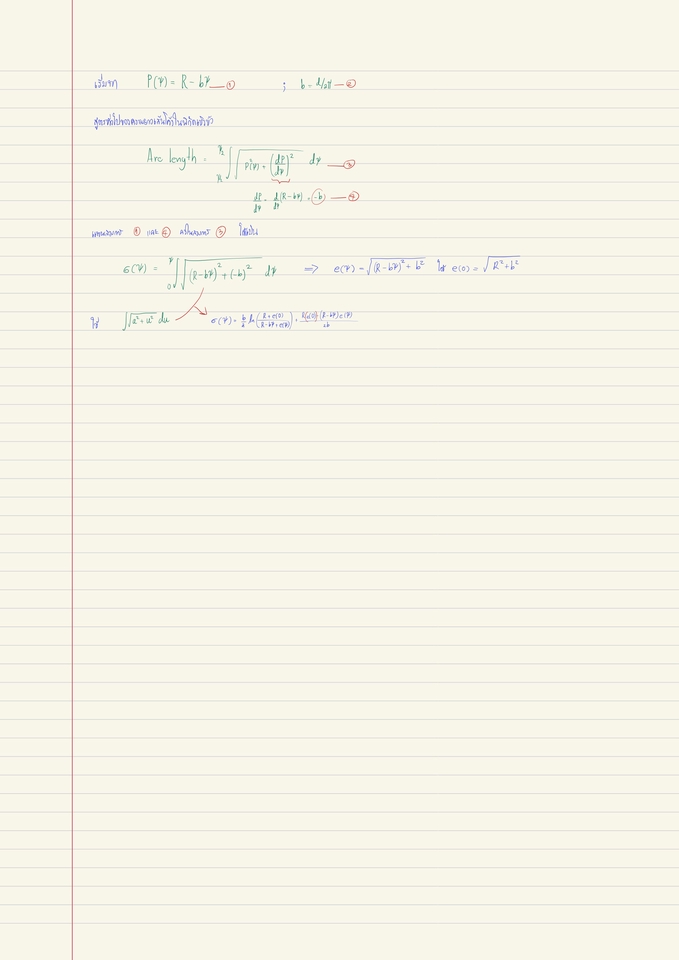 เริ่มจาก P(ψ) = R - bψ — ① ; b = d/2π — ②
สูตรทั่วไปของความยาวเส้นโค้งในพิกัดเชิงขั้ว
Arc length = ∫ √(P²(ψ) + (dP/dψ)²) dψ — ③
dP/dψ = d/dψ (R - bψ) = -b — ④
แทนสมการ ① และ ② ลงในสมการ ③ ได้เป็น
σ(ψ) = ∫₀^ψ √((R - bψ)² + (-b)²) dψ ⇒ e(ψ) = √((R - bψ)² + b²) ให้ e(0) = √(R² + b²)
ใช้ ∫√(a² + u²) du σ(ψ) = b/2 ln((R + e(0))/(R - bψ + e(ψ))) + (R e(0) - (R - bψ) e(ψ))/2b